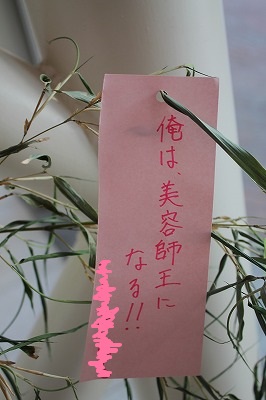 俺は、美容師王に
なる!!